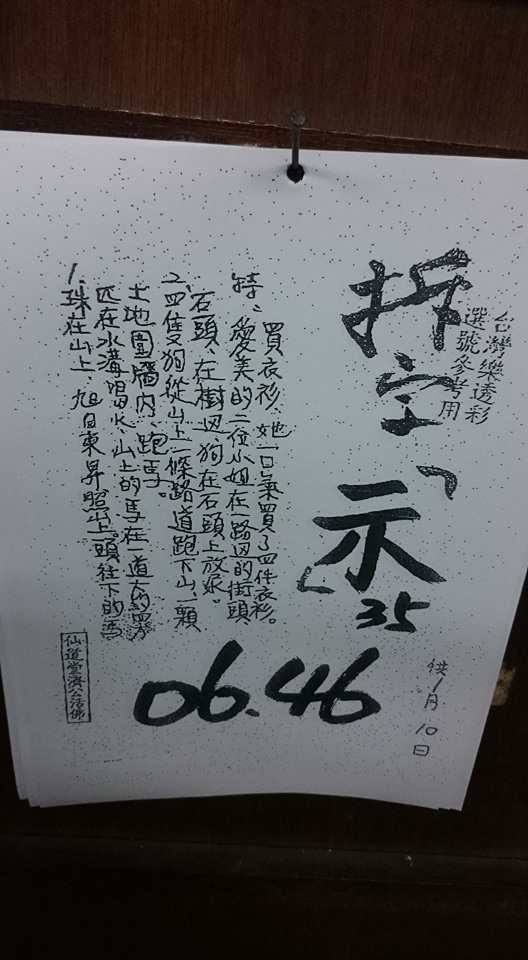 台灣樂透彩
選號參考用
拆字「示」
35
供1月10日
1.珠在山上、旭日東昇照山上頭往下的馬
匹在水溝喝水、山上的馬在一道大的
土地圍牆內、跑馬。
2.四隻狗從山上一條路道跑下山、一顆
石頭、在樹边、狗在石頭上放尿。
特:愛美的二位小姐在一路边的街頭
買衣衫、她一口氣買了四件衣衫。
06.46
仙道堂濟公活佛